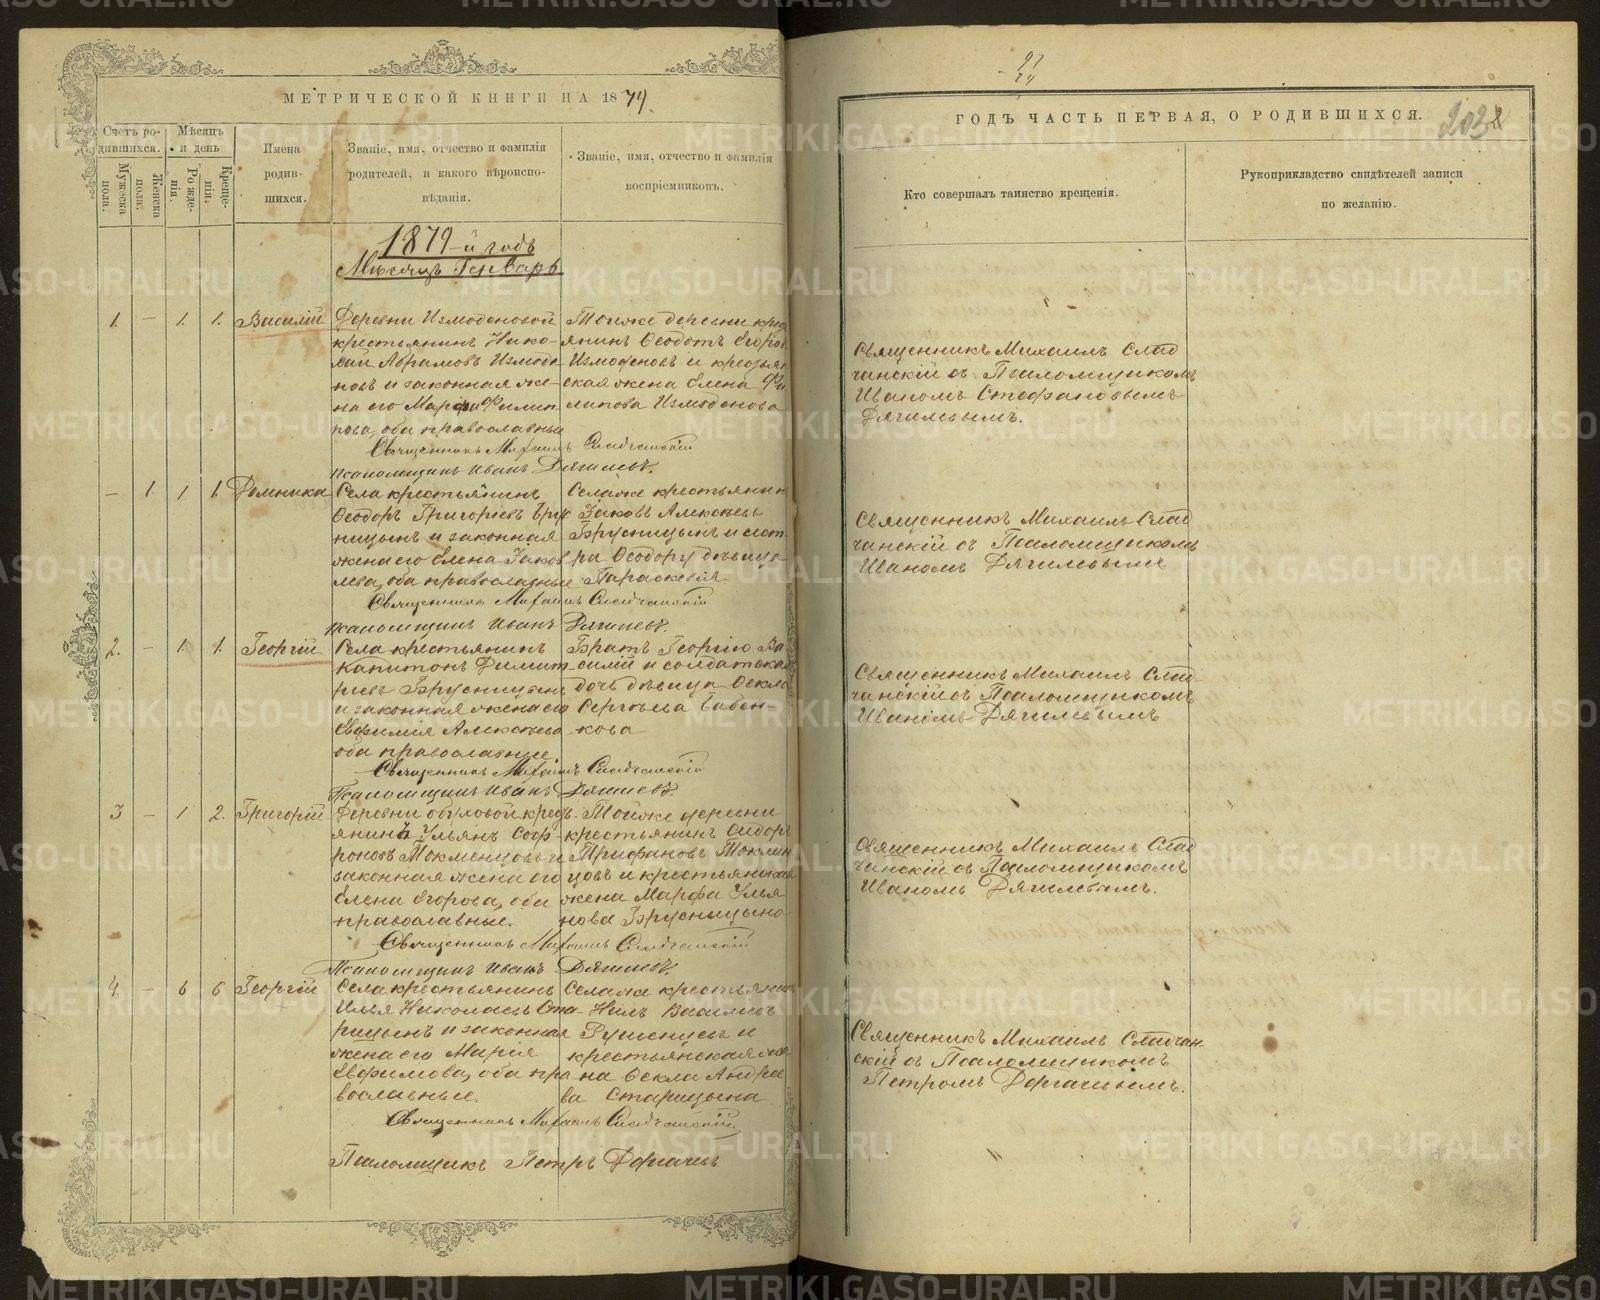 МЕТРИЧЕСКОЙ КНИГИ НА 1879.
Счетъ ро-
дившихся.
Мѣсяцъ
и день
Мужеска
пола.
Женска
пола.
Рожде-
нія.
Креще-
нія.
Имена
родив-
шихся.
Званіе, имя, отчество и фамилія
родителей, и какого вѣроиспо-
вѣданія.
Званіе, имя, отчество и фамилія
воспріемниковъ.
1879-й годъ
Мѣсяцъ Генварь
1. – 1. 1. Василій
Деревни Измоденовой
крестьянинъ Нико-
лай Абрамовъ Измоде
новъ и законная же-
на его Марфа Филип
пова, оба православные
Тойже деревни крес
янинъ Ѳеодотъ Егоров
Измоденовъ и крестьян
ская жена Елена Фи
липова Измоденова
Священникъ Михаилъ Сладчанскій
Псаломщикъ Иванъ Дягилевъ.
– 1. 1 1. Домника
Села крестьянинъ
Ѳеодоръ Григорьевъ Брус
ницынъ и законная
жена его Елена Яков
лева, оба православные
Селаже крестьянин
Яковъ Алексѣевъ
Брусницынъ и сест
ра Ѳеодору дѣвица
Параскевія
Священникъ Михаилъ Сладчанскій
Псаломщикъ Иванъ Дягилевъ.
2. – 1. 1. Георгій
Села крестьянинъ
Капитонъ Димит
ріевъ Брусницынъ
и законная жена его
Евфимія Алексѣева
оба православные
Братъ Георгію Ва
силій и солдатская
дочь дѣвица Ѳекла
Сергѣева Бабен-
кова
Священникъ Михаилъ Сладчанскій
Псаломщикъ Иванъ Дягилевъ
3 – 1 2. Григорій
Деревни Обуховой крес
янинъ Ульянъ Соф-
роновъ Токменцовъ и
законная жена его
Елена Егорова, оба
православные.
Тойже деревни
крестьянинъ Сидоръ
Трифановъ Токмен
цовъ и крестьянская
жена Марфа Улья
нова Брусницына
Священникъ Михаилъ Сладчанскій
Псаломщикъ Иванъ Дягилевъ.
4 – 6 6 Георгій
Села крестьянинъ
Илья Николаевъ Ста-
рицынъ и законная
жена его Марія
Евфимова, оба пра
вославные.
Селаже крестьянин
Нилъ Васильевъ
и
крестьянская же
на Ѳекла Андрее
ва Старицына
Священникъ Михаилъ Сладчанскій
Псаломщикъ Петръ Доргачевъ
ГОДЪ ЧАСТЬ ПЕРВАЯ, О РОДИВШИХСЯ.
Кто совершалъ таинство крещенія.
Рукоприкладство свидѣтелей записи
по желанію.
Священникъ Михаилъ Слад
чанскій съ Псаломщикомъ
Иваномъ Стефановымъ
Дягилевымъ.
Священникъ Михаилъ Слад
чанскій съ Псаломщикомъ
Иваномъ Дягилевымъ
Священникъ Михаилъ Слад
чанскій съ Псаломщикомъ
Иваномъ Дягилевымъ
Священникъ Михаилъ Слад
чанскій съ Псаломщикомъ
Иваномъ Дягилевымъ.
Священникъ Михаилъ Сладчан
скій съ Псаломщикомъ
Петромъ Доргачевымъ.
METRIKI.GASO-URAL.RU